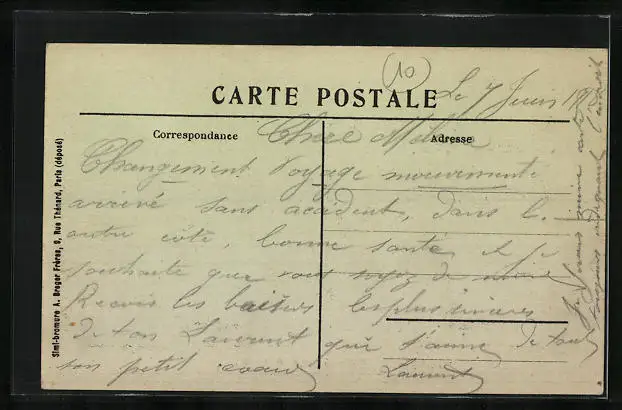 (10)
Le 7 Juin 19
CARTE POSTALE
Correspondance
Adresse
Chère
Changement Voyage mouvementé
arrivé sans accident, dans l.
autre côté, bonne santé, et je
souhaite que vous soyez de même
Recevis les baisers les plus sincères
de ton Laurent qui t'aime de tout
son petit cœur
Laurent
Simi-bromure A. Breger Frères, 9, Rue Thénard, Paris (déposé)